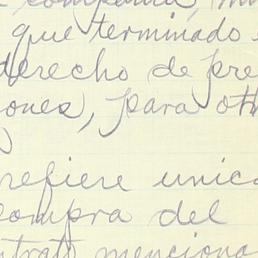 compañía, 
que terminado
derecho de pre
ones, para otr

refiere unica
compra del
ntrato menciona